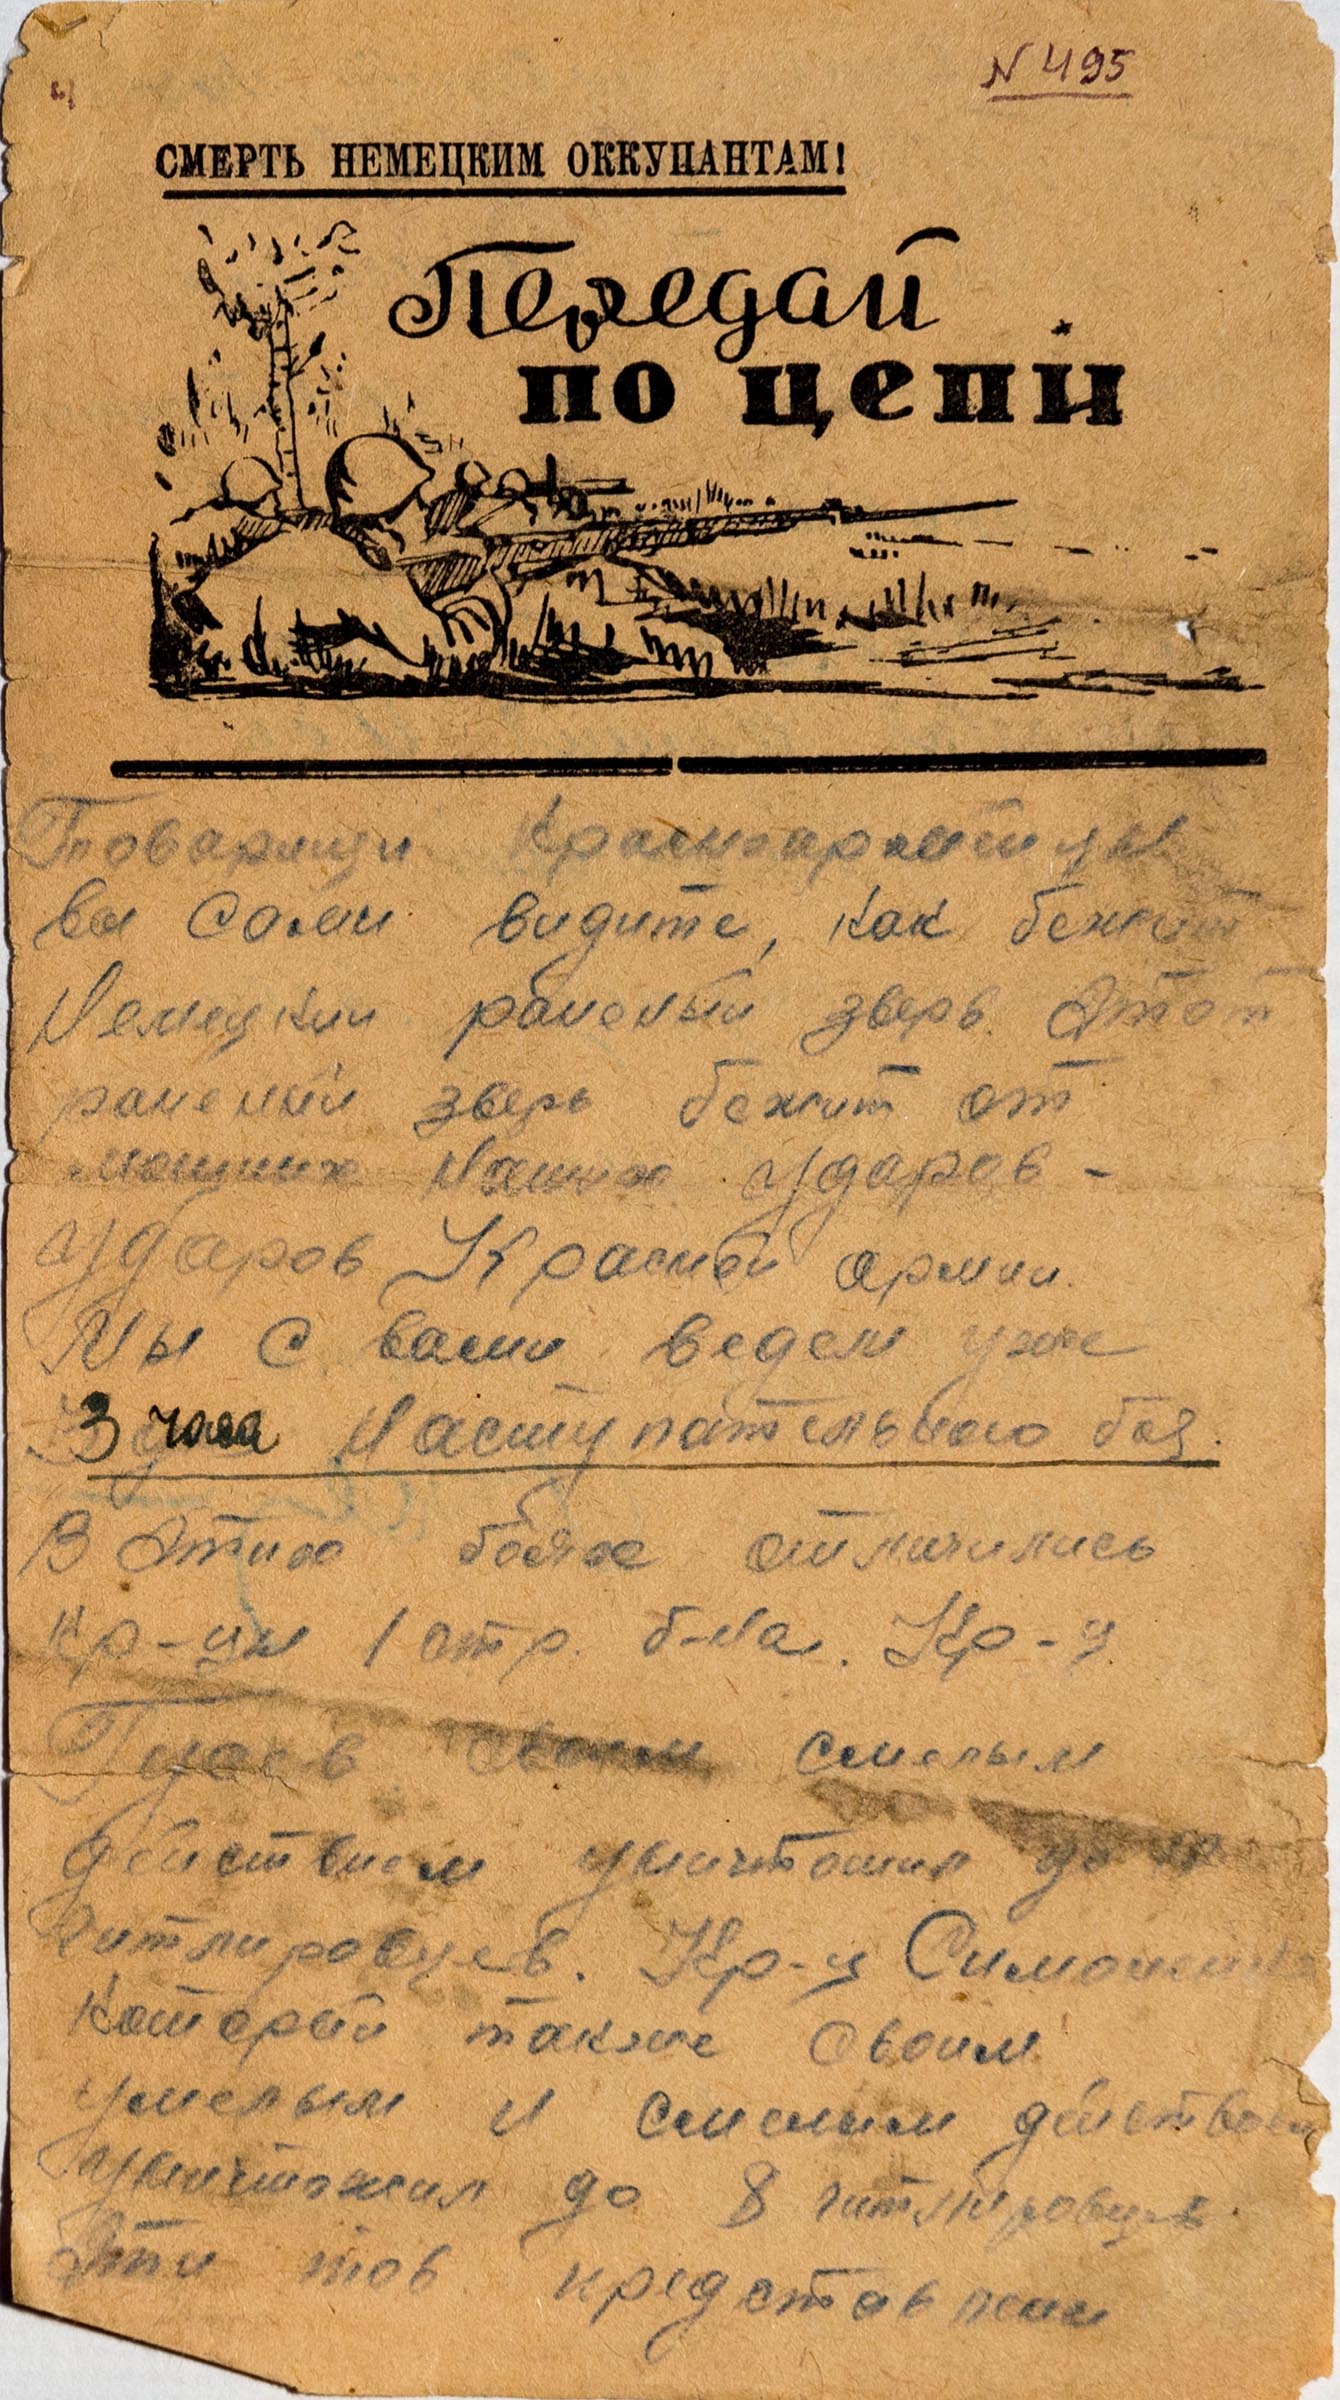 N 495
СМЕРТЬ НЕМЕЦКИМ ОККУПАНТАМ!
Передай
по цепи
Товарищи Красноармейцы
вы сами видите, как бежит
Немецкий раненый зверь. Этот
раненый зверь бежит от
мощных Наших ударов -
ударов Красной армии.
Мы с вами ведем уже
3 часа Наступательного боя.
В Этих боях отличились
Кр-цы 1 стр. б-на. Кр-ц
своим смелым
действием уничтожил до
гитлеровцев. Кр-ц
Который также своим
умелым и смелым действием
уничтожил до 8 гитлеровцев
Эти тов. представлены